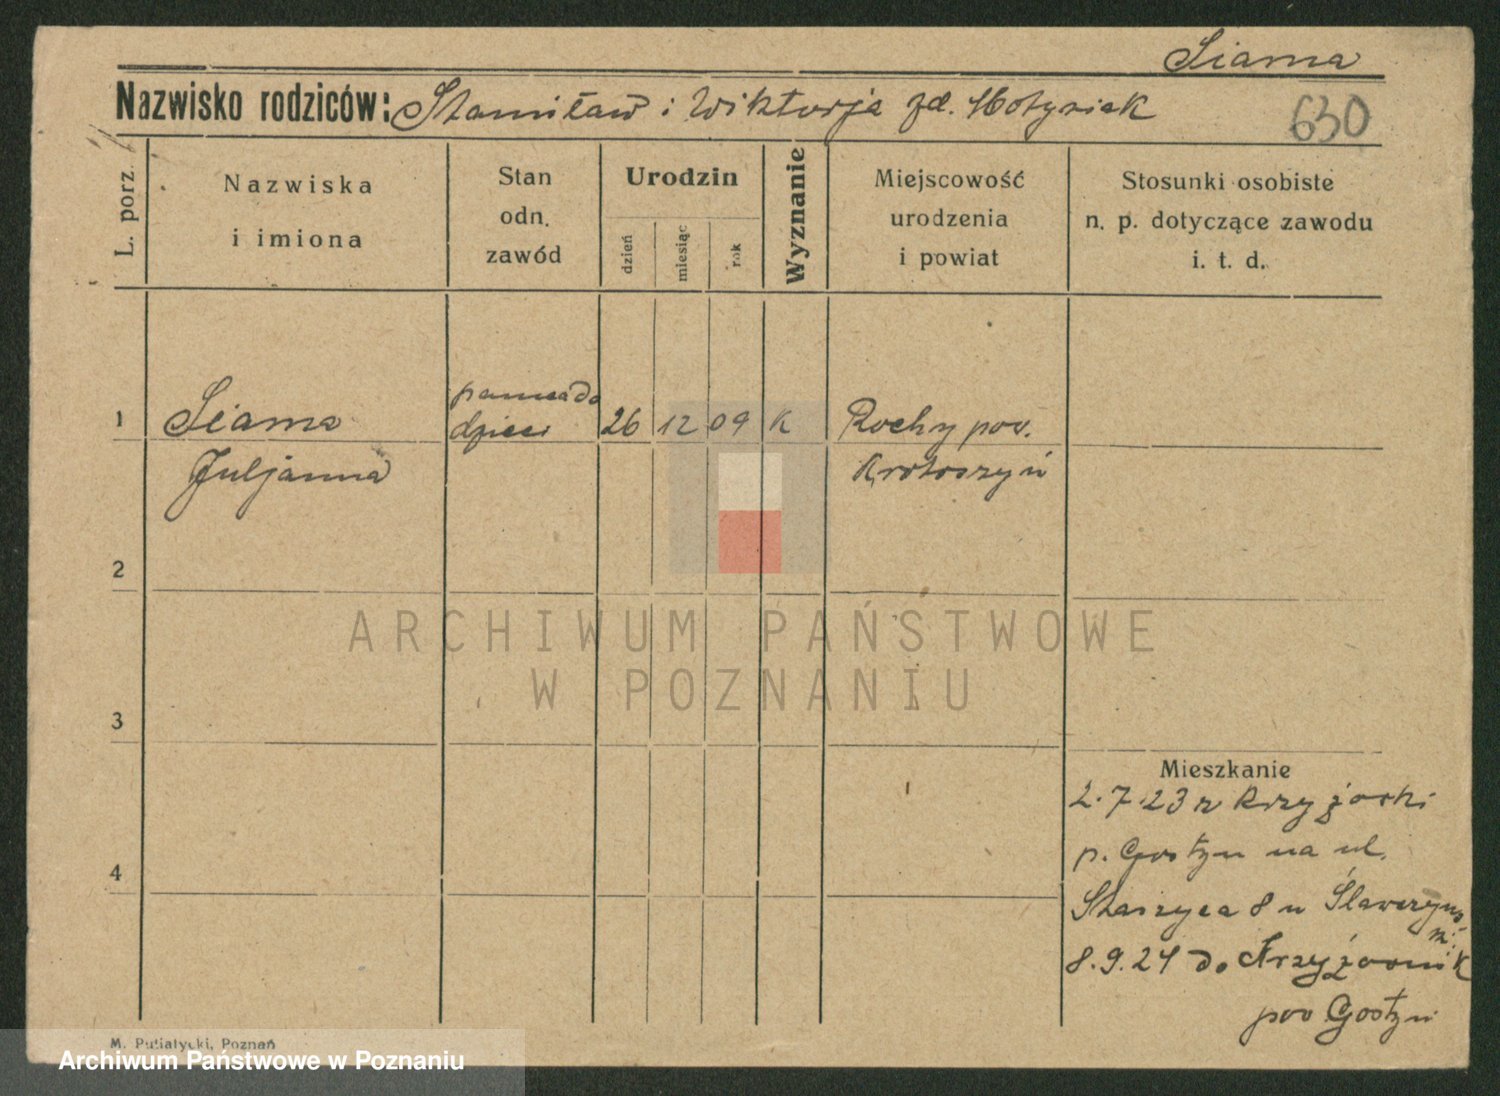 Siama
Nazwisko rodziców: Stanisław i Wiktorja zd. Hołysiak
630
L. porz.
Nazwiska
i imiona
Stan
odn.
zawód
Urodzin
dzień
miesiąc
rok
Wyznanie
Miejscowość
urodzenia
i powiat
Stosunki osobiste
n. p. dotyczące zawodu
i. t. d.
1
Siama
Juljanna
panna do
dzieci
26
12
09
K
Rochy pow.
Krotoszyń
2
3
4
Mieszkanie
2.7.23 z Krzyżanki
p. Gostyn na ul.
Staszyca 8 u
8.9.24 do
pow Gostyn
M. Putiatycki, Poznań
ARCHIWUM PAŃSTWOWE
W POZNANIU
Archiwum Państwowe w Poznaniu